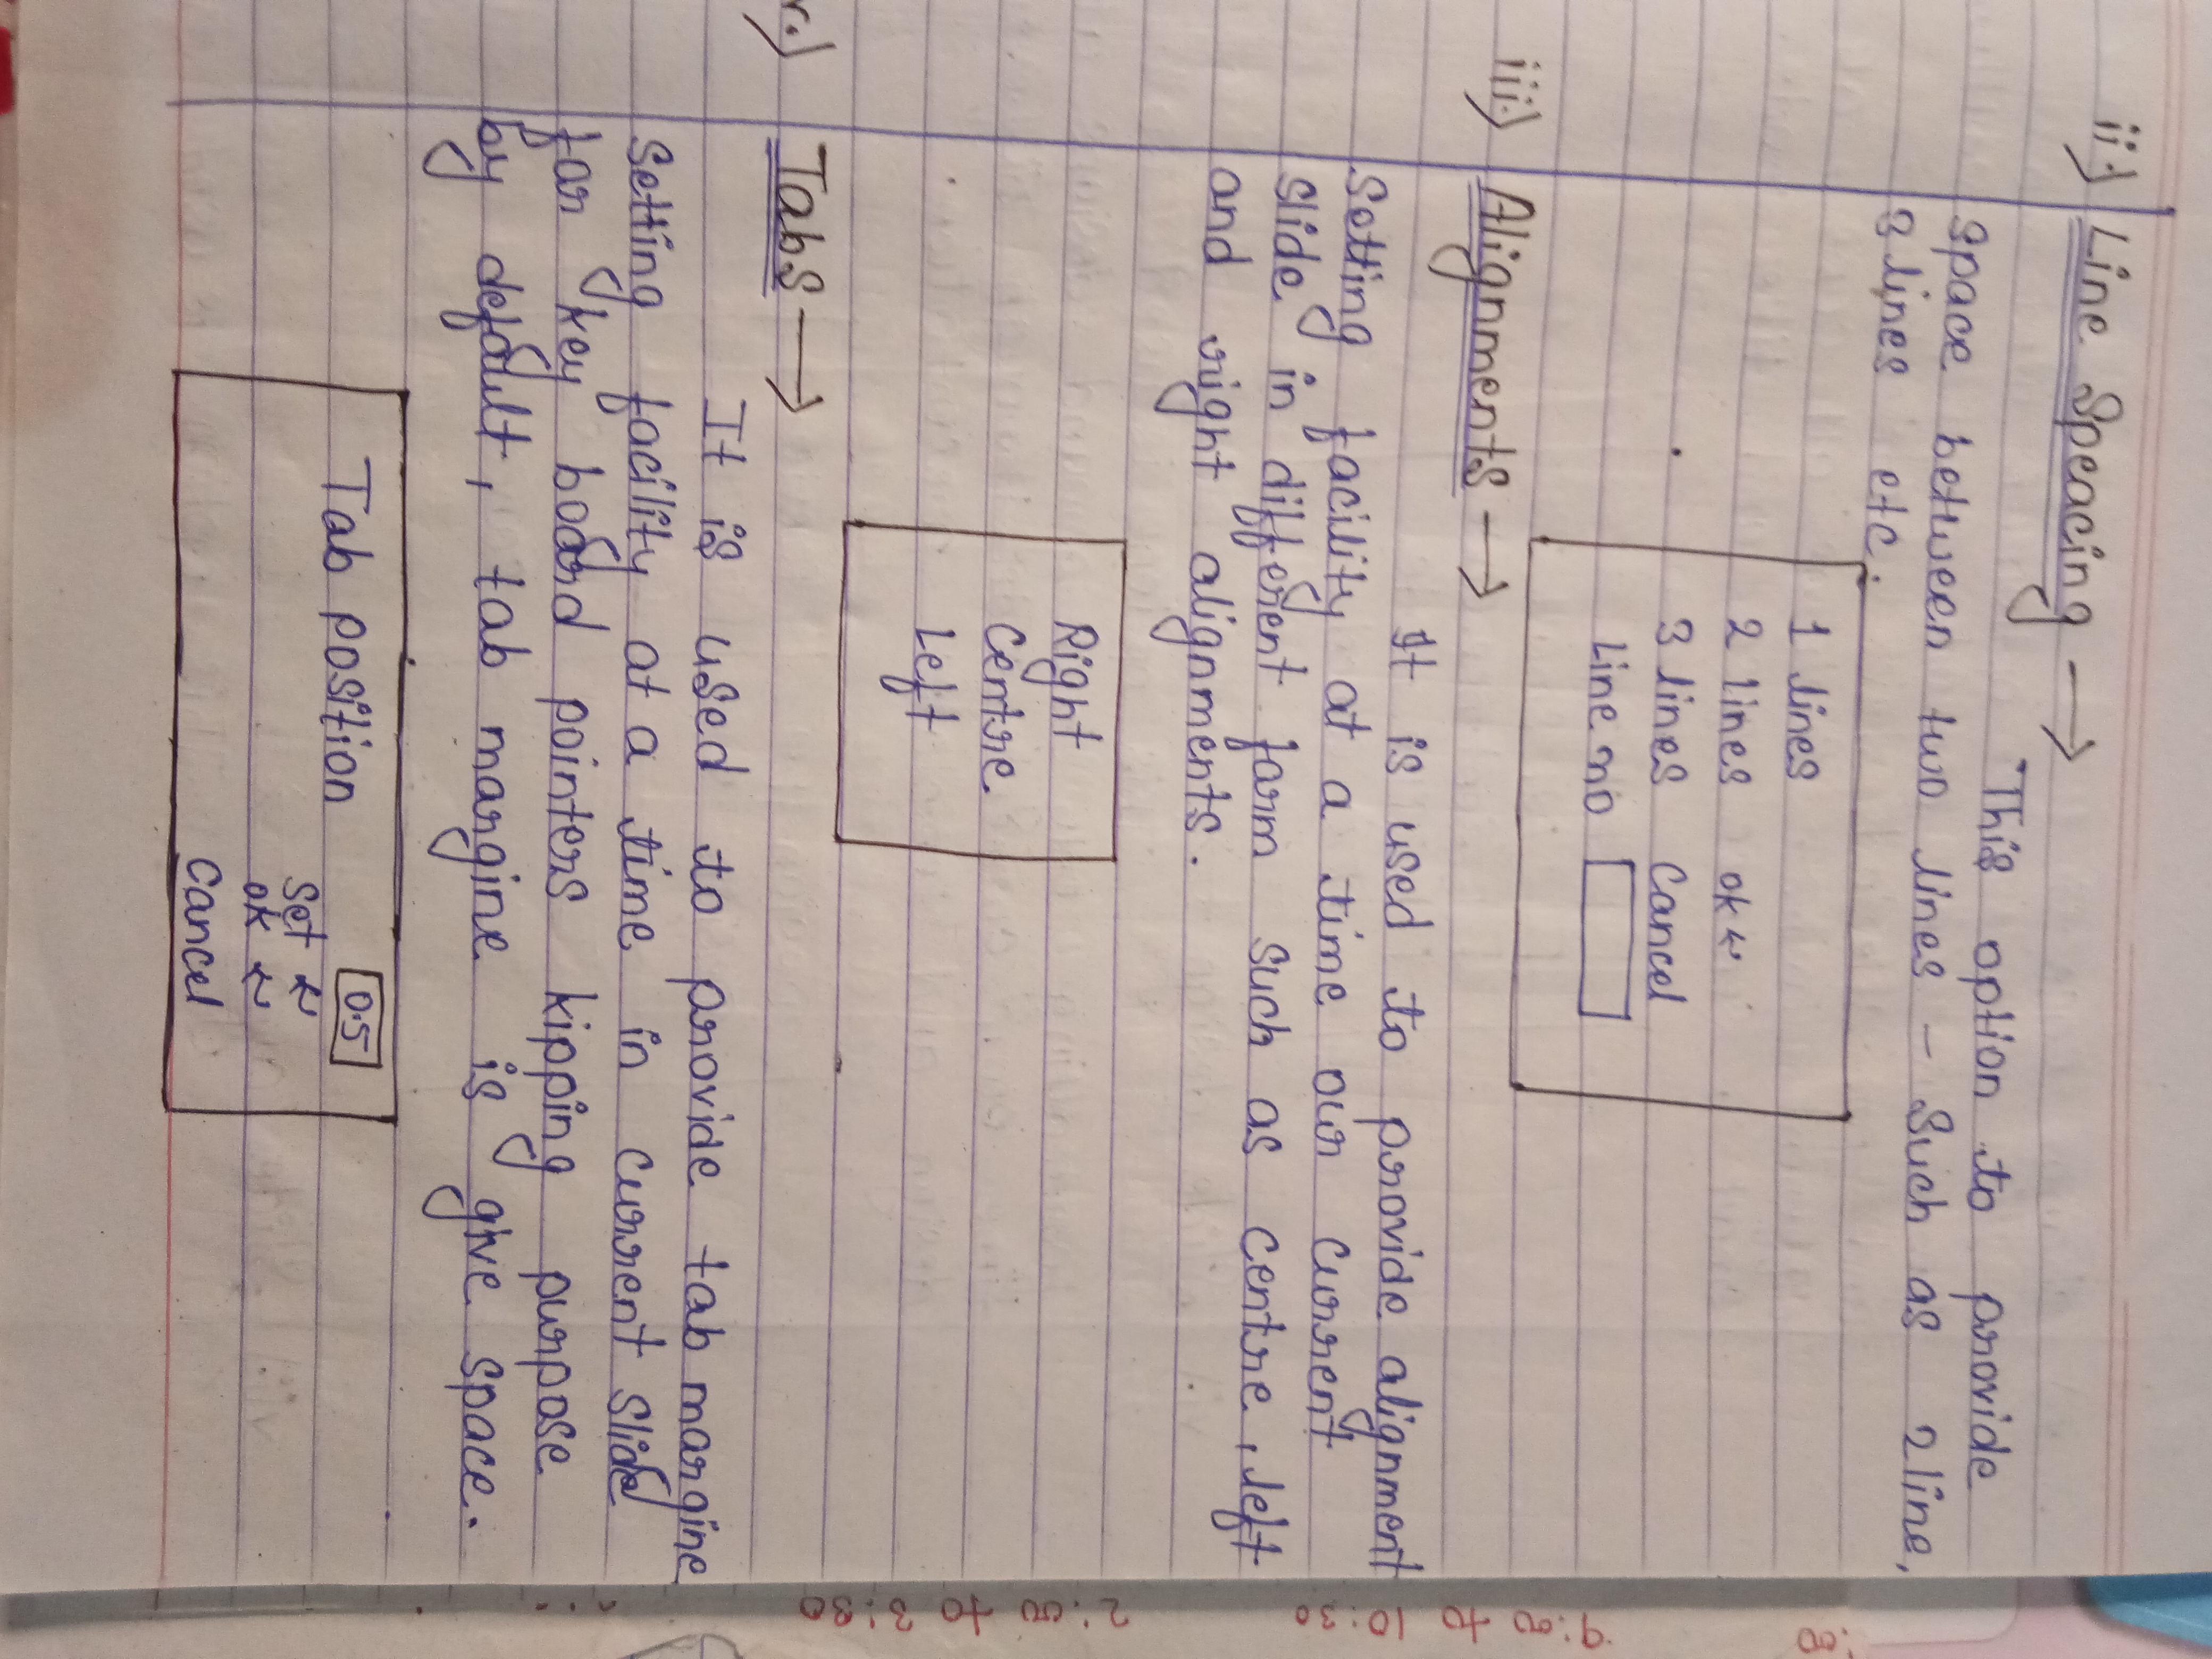 ii.) Line Speacing →
This option to provide
space between two lines - Such as 2 line,
3 lines etc.
1 lines
2 lines ok ↵
3 lines Cancel
Line no
iii.) Alignments →
It is used to provide alignment
Setting facility at a time our current
slide in different form such as centre, left
and right alignments.
Right
Centre
Left
Tabs →
It is used to provide tab margine
Setting facility at a time in current slide
for key board pointers kipping purpose
by default, tab margine is give space.
Tab position 0.5
Set ↵
ok ↵
Cancel
9:00 to 10:30
2:00 to 3:30